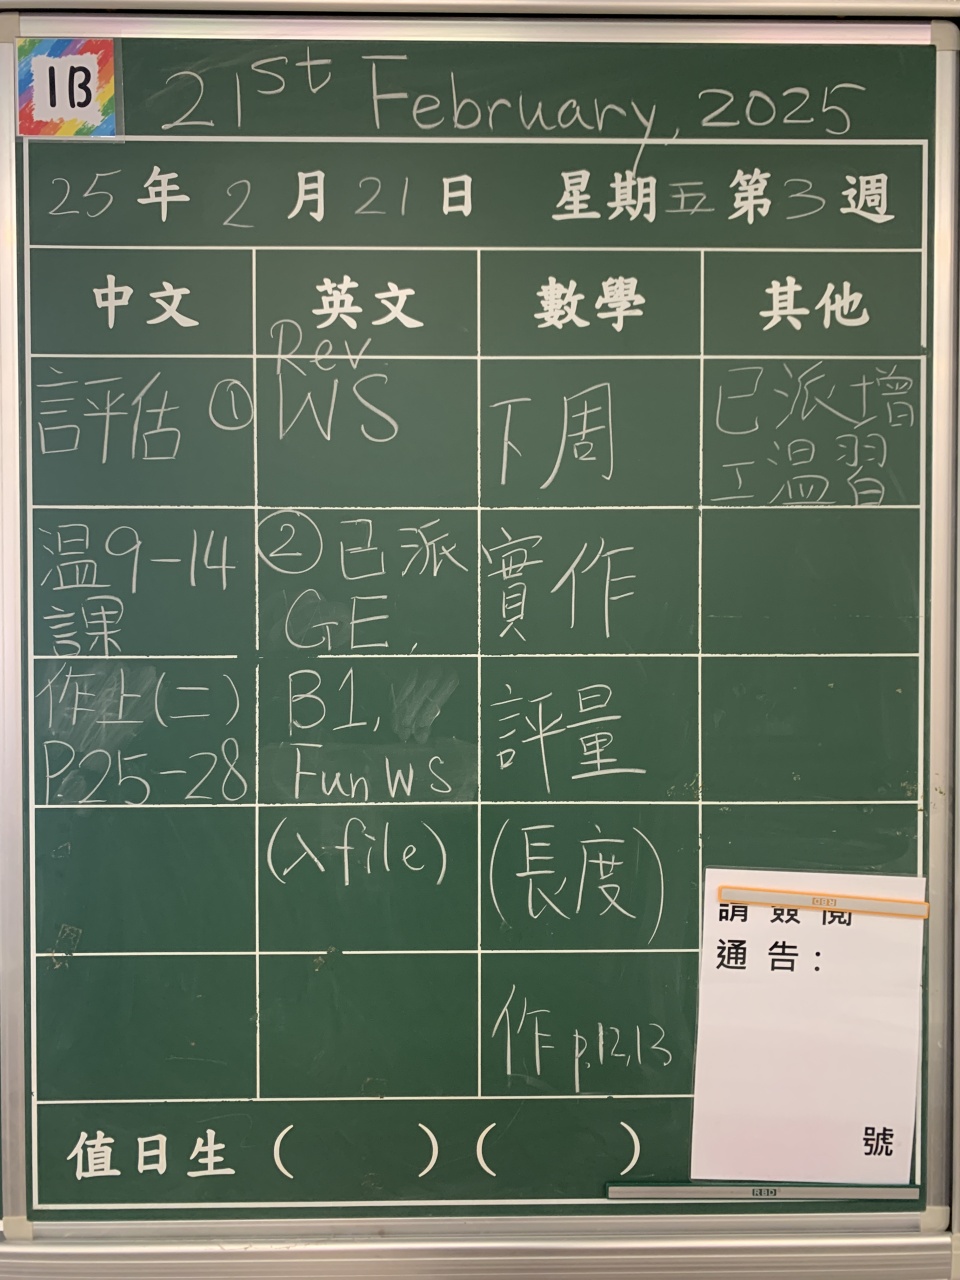 1B
21st February, 2025
25年2月21日 星期五第3週
中文
英文
數學
其他
評估①
温9-14
課
作上(二)
P.25-28
Rev
WS
②已派
GE,
B1,
Fun WS
(入file)
下周
實作
評量
(長度)
作 p.12,13
已派增
工溫習
請簽閱
通告:
號
值日生( )( )
RBD